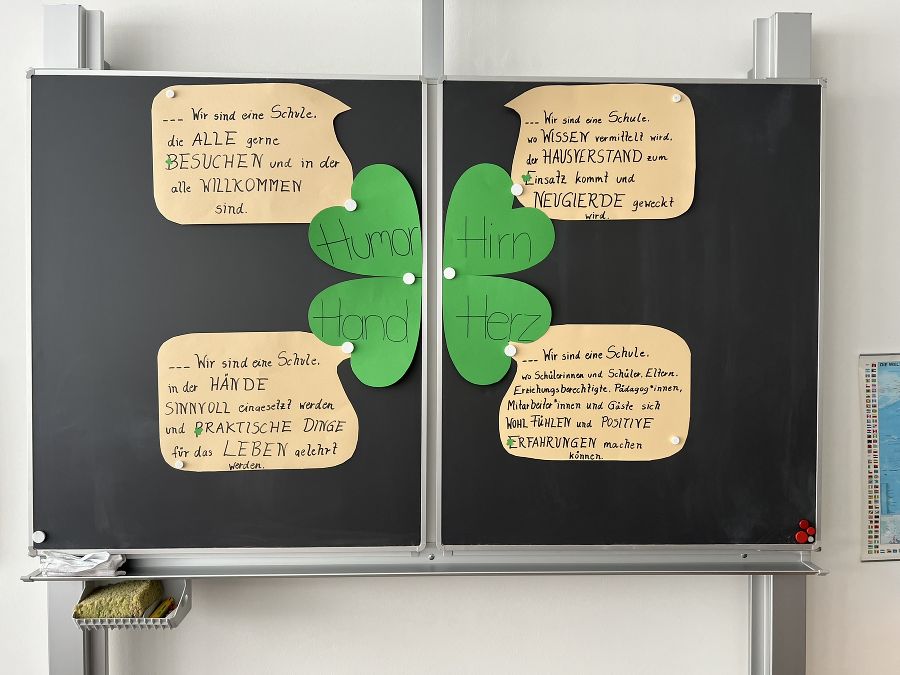 --- Wir sind eine Schule.
die ALLE gerne
BESUCHEN und in der
alle WILLKOMMEN
sind.
Humor
--- Wir sind eine Schule.
wo WISSEN vermittelt wird.
der HAUSVERSTAND zum
Einsatz kommt und
NEUGIERDE geweckt
wird.
Hirn
Hand
--- Wir sind eine Schule.
in der HÄNDE
SINNVOLL eingesetzt werden
und PRAKTISCHE DINGE
für das LEBEN gelehrt
werden.
Herz
--- Wir sind eine Schule.
wo Schülerinnen und Schüler. Eltern.
Erziehungsberechtigte. Pädagog*innen,
Mitarbeiter*innen und Gäste sich
WOHL FÜHLEN und POSITIVE
ERFAHRUNGEN machen
können.
DIE WEL